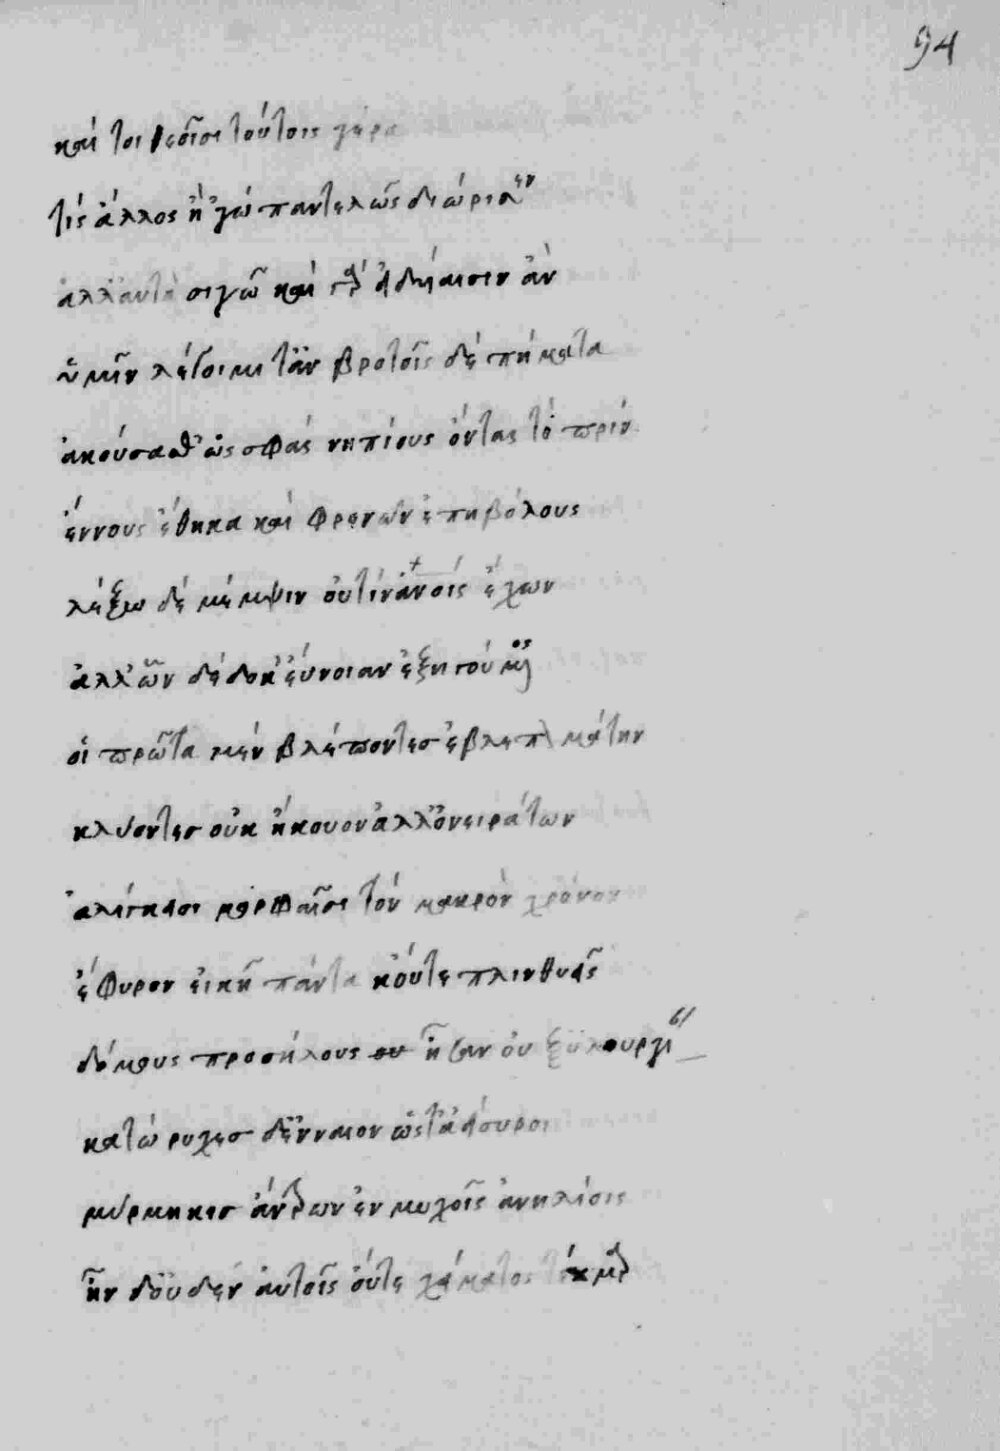 94
καί τοι θεοῖσι τούτοις γέρα
τίς ἄλλος ἢ ᾿γὼ παντελῶς διώρισεν
ἀλλ᾽ αὐτὰ σιγῶ καὶ γὰρ εἰδυίαισιν ἂν
ὑμῖν λέγοιμι τἂν βροτοῖς δὲ πήματα
ἀκούσαθ᾽ ὥς σφας νηπίους ὄντας τὸ πρίν
ἔννους ἔθηκα καὶ φρενῶν ἐπηβόλους
λέξω δὲ μέμψιν οὔτιν᾽ ἀνοις ἔχων
ἀλλ᾽ ὧν δέδωκ᾽ εὔνοιαν ἐξηγούμενος
οἳ πρῶτα μὲν βλέποντες ἔβλεπον μάτην
κλύοντες οὐκ ἤκουον ἀλλ᾽ ὀνειράτων
ἀλίγκιοι μορφαῖσι τὸν μακρὸν χρόνον
ἔφυρον εἰκῆ πάντα κοὔτε πλινθυφεῖς
δόμους προσήλους ου ἦσαν οὐ ξυλουργίαν
κατώρυχες δ᾽ ἔνναιον ὥστ᾽ ἀήσυροι
μύρμηκες ἄντρων ἐν μυχοῖς ἀνηλίοις
ἦν δ᾽ οὐδὲν αὐτοῖς οὔτε χείματος τέκμαρ